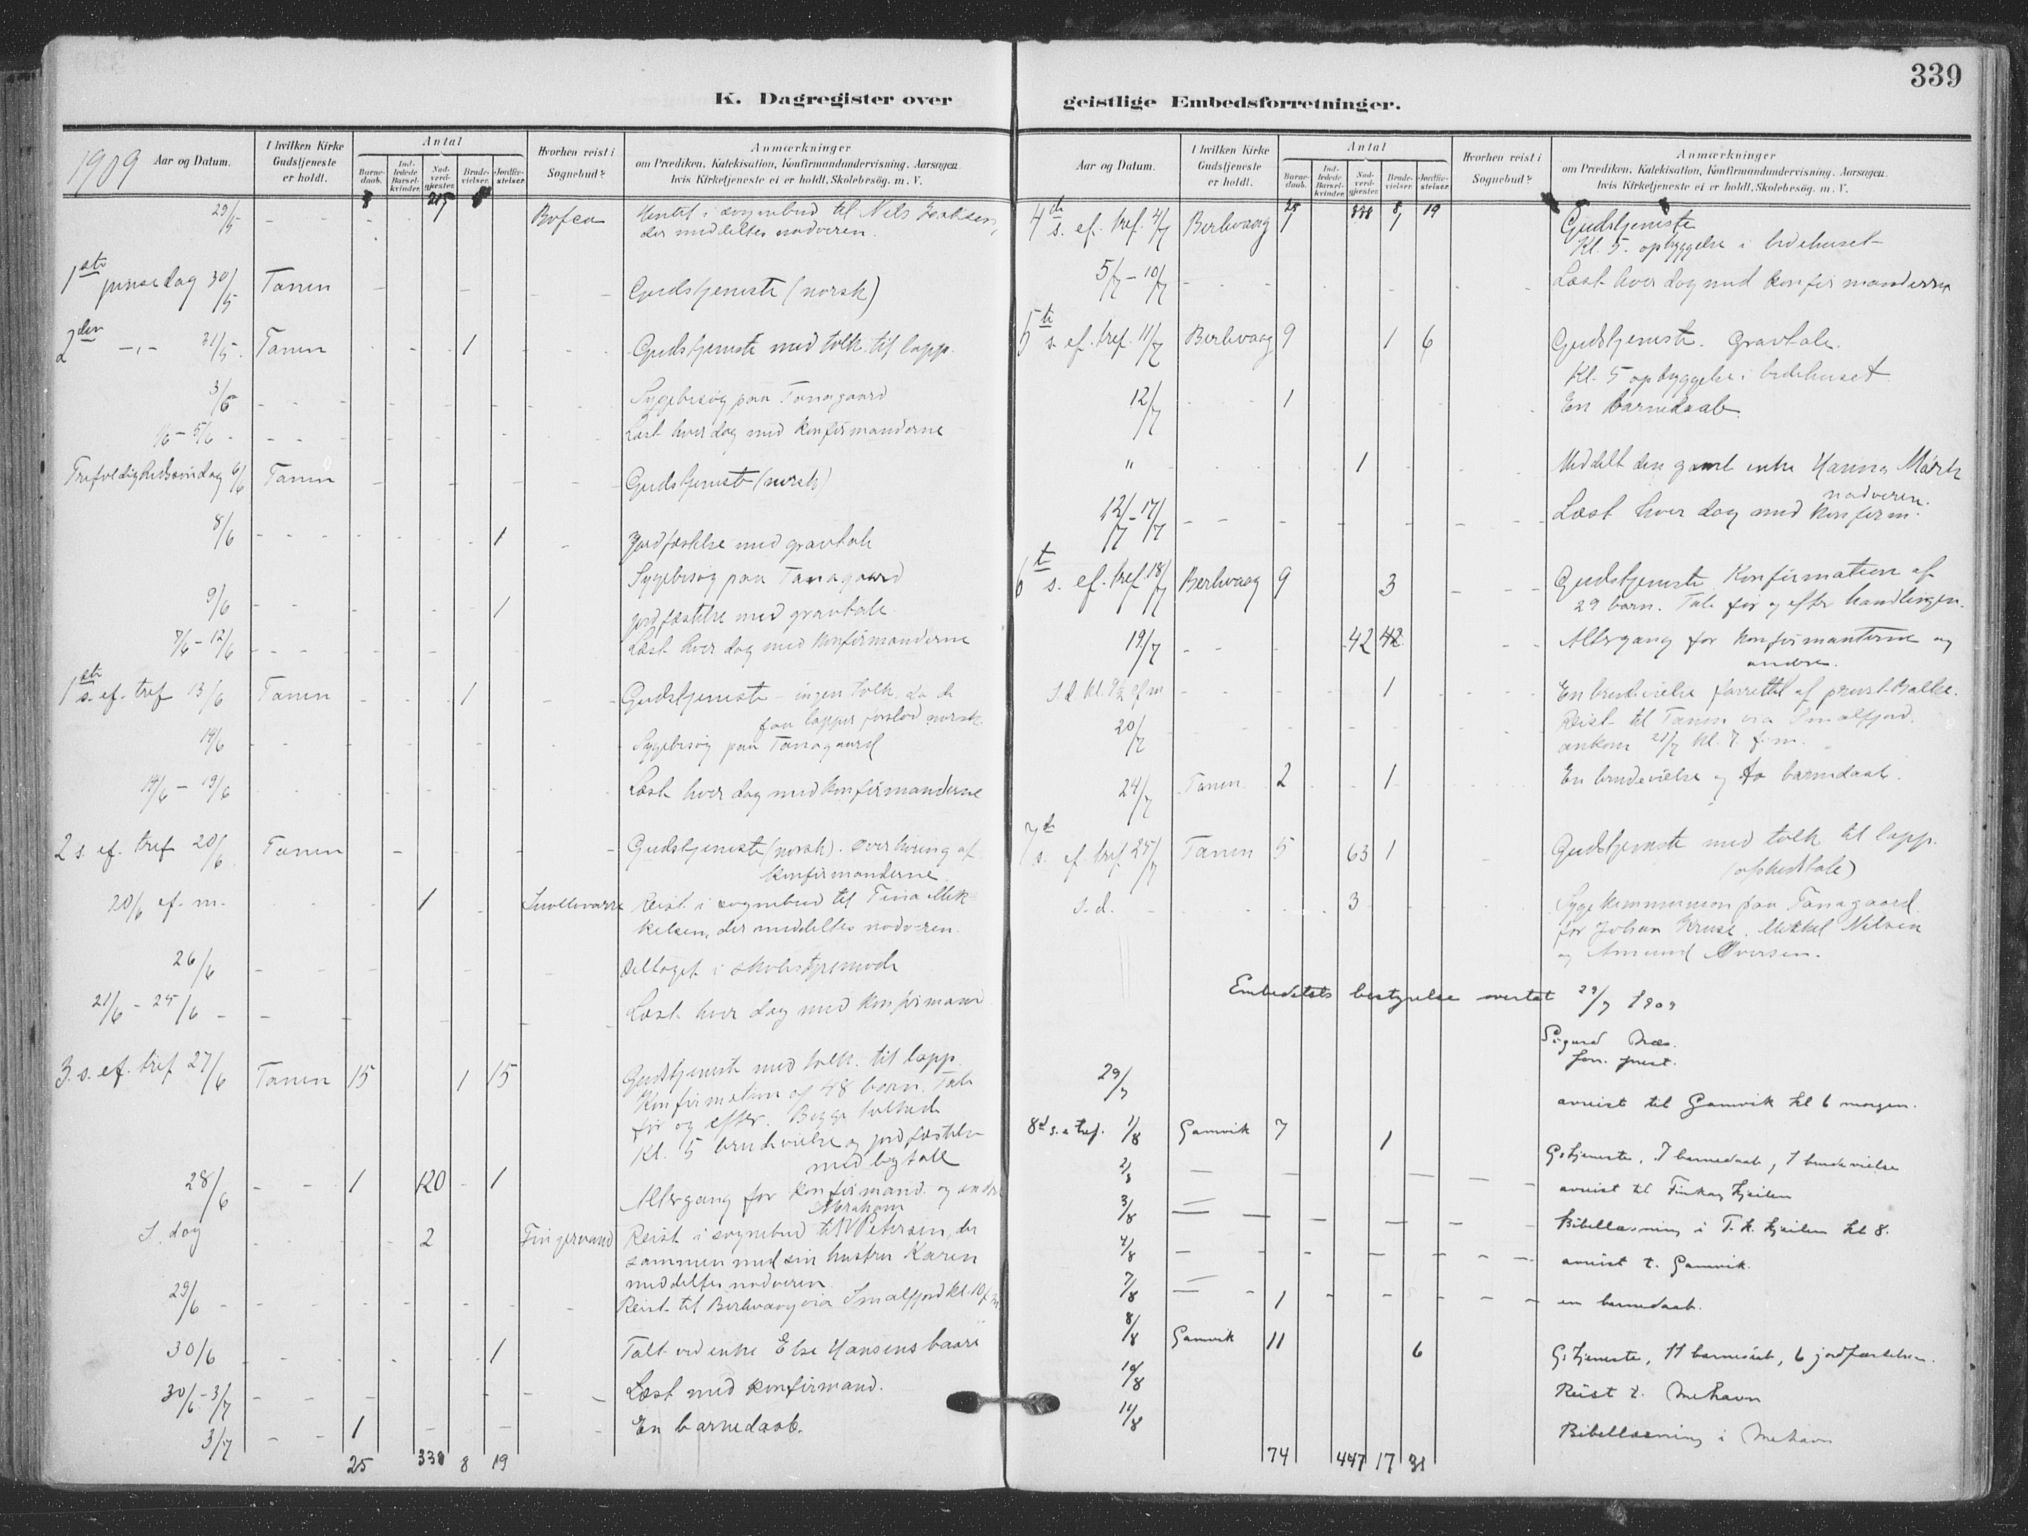 339
K. Dagregister over geistlige Embedsforretninger.
1909 Aar og Datum.
I hvilken Kirke Gudstjeneste er holdt.
Antal
Barnedaab.
Indledede Barselkvinder.
Nadverdgjester.
Brudevielser.
Jordfæstelser.
Hvorhen reist i Sognebud?
Anmærkninger
om Prædiken, Katekisation, Konfirmandundervisning, Aarsagen,
hvis Kirketjeneste ei er holdt, Skolebesøg, m. V.
29/5 Hentet i sognebud til Nils
der meddeltes nadveren.
1ste pinsedag 30/5 Tanen Gudstjeneste (norsk)
2den -,- 31/5. Tanen 1 Gudstjeneste med tolk. til lapp.
3/6 Sygebesøg paa Tanagaard
1/6 - 5/6 Læst hver dag med konfirmanderne
Trefoldighedssøndag 6/6 Tanen Gudstjeneste (norsk)
8/6 1 Jordfæstelse med gravtale
Sygebesøg paa Tanagaard
9/6 1 jordfæstelse med gravtale.
7/6 - 12/6 Læst hver dag med konfirmanderne
1ste s. ef. tref 13/6 Tanen 1 Gudstjeneste - ingen tolk, da de
faa lapper forstod norsk.
14/6 Sygebesøg paa Tanagaard
14/6 - 19/6 Læst hver dag med konfirmanderne
2 s. ef. tref 20/6 Tanen Gudstjeneste (norsk). Overhøring af
konfirmanderne.
20/6 ef. m. 1 Reist i sognebud til Tina Mik-
kelsen, der meddeltes nadveren.
26/6 Deltaget i skolestyremøde
21/6 - 25/6 Læst hver dag med konfirmand
3. s. ef. tref 27/6 Tanen 15 1 15 Gudstjenest med tolk. til lapp.
Konfirmation af 48 barn. Tale
før og efter. Begge tolkede
Kl. 5 brudevielse og jordfæstelse
med tale
28/6 1 120 1 Altergang for konfirmand. og andre
Abraham
S. dag 2 Reist i sognebud til Petersen, der
sammen med sin hustru Karen
meddeltes nadveren
29/6 Reist til Berlevaag via Smalfjord kl. 10 f. m.
30/6 1 Talt ved enke Else Hansens baare
30/6 - 3/7 Læst med konfirmand.
3/7 1 En barnedaab.
25 338 8 19
Aar og Datum.
I hvilken Kirke Gudstjeneste er holdt.
Antal
Barnedaab.
Indledede Barselkvinder.
Nadverdgjester.
Brudevielser.
Jordfæstelser.
Hvorhen reist i Sognebud?
Anmærkninger
om Prædiken, Katekisation, Konfirmandundervisning, Aarsagen,
hvis Kirketjeneste ei er holdt, Skolebesøg, m. V.
25 338 8 19
4de s. ef. tref. 4/7 Berlevaag 1 1 Gudstjeneste
Kl. 5. opbyggelse i bedehuset
5/7 - 10/7 Læst hver dag med konfirmanderne
5te s. ef. tref. 11/7 Berlevaag 9 1 6 Gudstjeneste. Gravtale.
Kl. 5 opbyggelse i bedehuset
12/7 1 En barnedaab
" 1 Meddelt den gamle enke Hanna Mørch
nadveren.
12/7 - 17/7 Læst hver dag med konfirm.
6te s. ef. tref 18/7 Berlevaag 9 3 Gudstjeneste Konfirmation af
29 barn. Tale før og efter handlingen.
19/7 42 42 Altergang for konfirmanterne og
andre.
1 En brudevielse forrettet af provst Balke.
20/7 Reist til Tanen via Smalfjord.
ankom 21/7 kl. 7 f. m.
24/7 Tanen 2 1 En brudevielse og to barnedaab.
7de s. ef. tref 25/7 Tanen 5 63 1 Gudstjeneste med tolk til lapp.
(afskedstale)
S. d. 3 Sygekommunion paa Tanagaard
for Johan Kruse, Mikkel Nilsen
og Amund Iversen.
Embedets bestyrelse overtat 29/7 1909
Sigurd Næs.
fon. prest.
29/7 avreist til Gamvik kl 6 morgen.
8de s. e tref. 1/8 Gamvik 7 1 G:tjeneste, 7 barnedaab, 1 brudevielse
2/8 avreist til Finkongkjeilen
3/8 Bibellæsning i F. k. kjeilen kl 8.
4/8 avreist t. Gamvik.
7/8 1 en barnedaab.
8/8 Gamvik 11 6 G:tjeneste, 11 barnedaab, 6 jordfæstelser.
10/8 Reist t. Mehavn
11/8 Bibellæsning i Mehavn
74 447 17 31